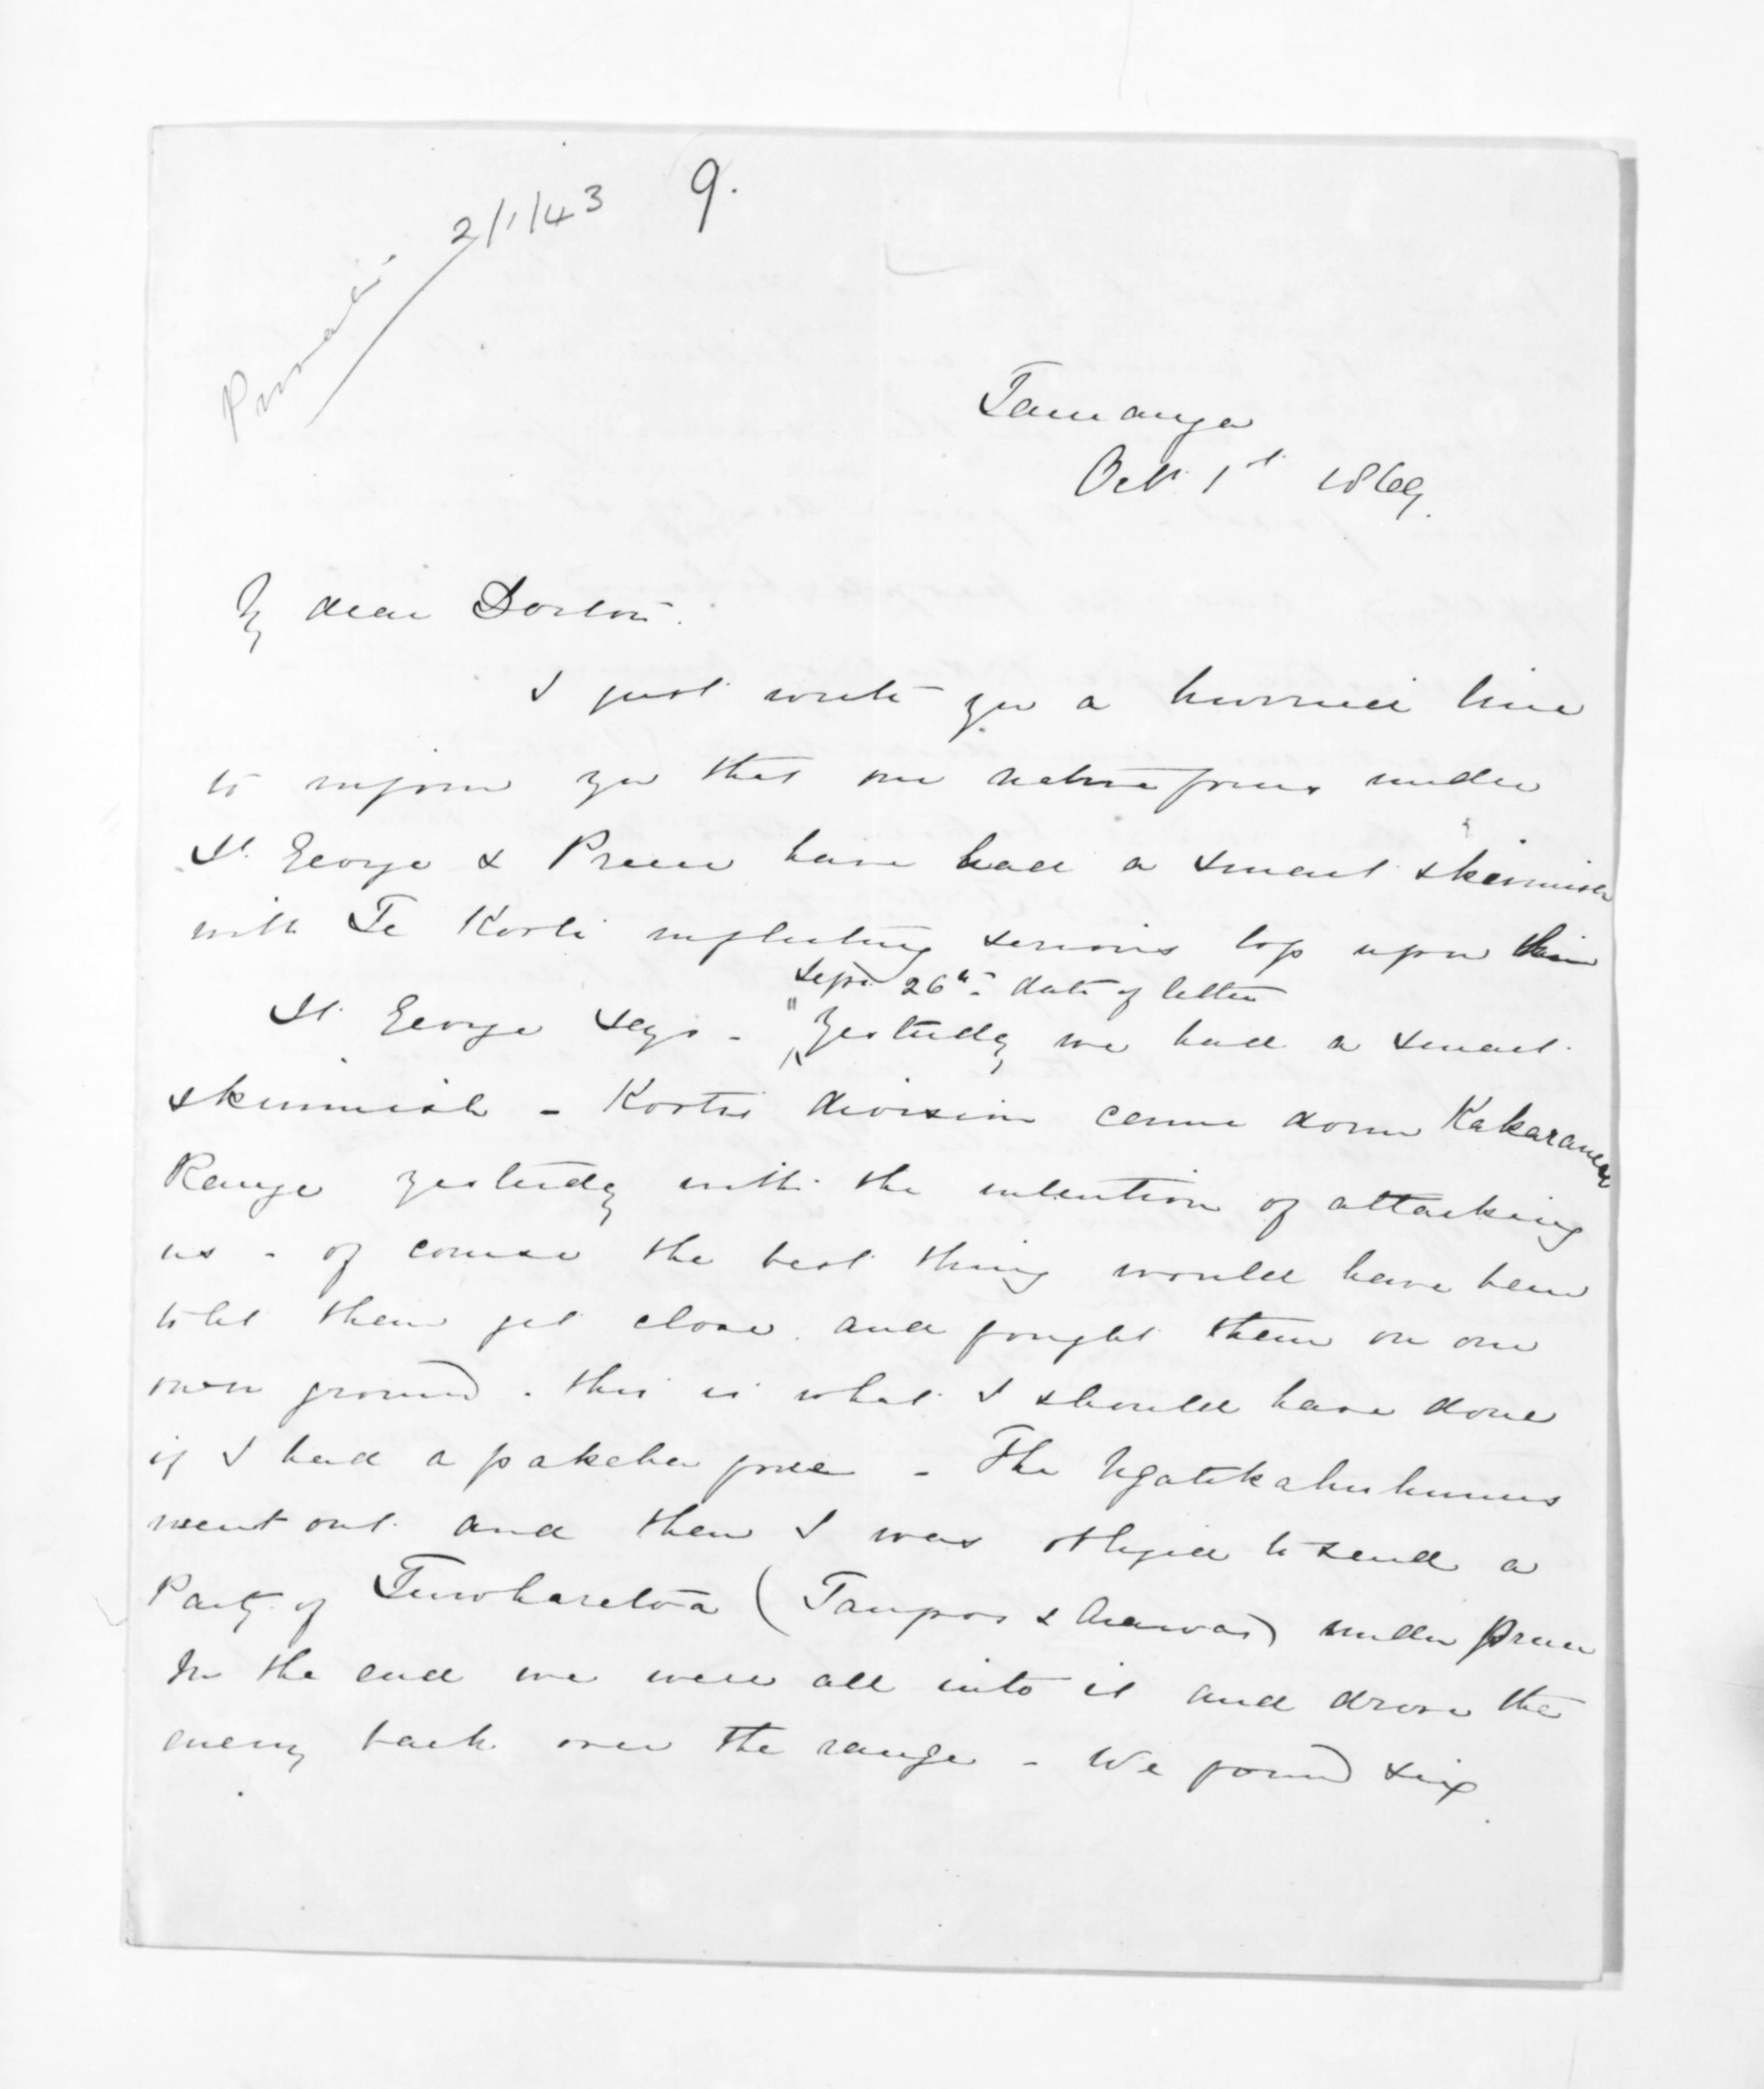 9.
Private 2/1/43
Tauranga
Octr. 1st 1869.
My dear Dorlon.
I just write you a hurried line
to inform you that our native forces under
St. George & Preece have had a smart skirmish
with Te Kooti inflicting serious loss upon him
Sepr. 26th. date of letter
St. George says - "Yesterday we had a smart
skirmish - Kooti's division came down Kakaramea
Range yesterday with the intention of attacking
us - of course the best thing would have been
to let them get close and fought them on our
own ground. this is what I should have done
if I had a pakeha force - The Ngatikahuhunus
went out and then I was obliged to send a
Party of Tuwharetoa (Taupos & Arawas) under Preece
In the end we were all into it and drove the
enemy back over the range - We found six